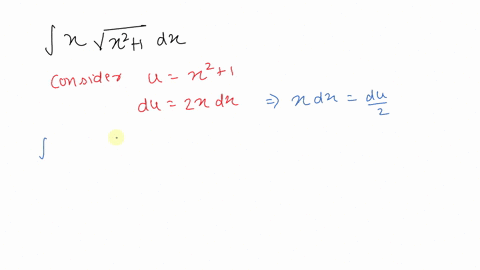 ∫ x √(x²+1) dx
Consider u = x²+1
du = 2x dx ⇒ x dx = du/2
∫